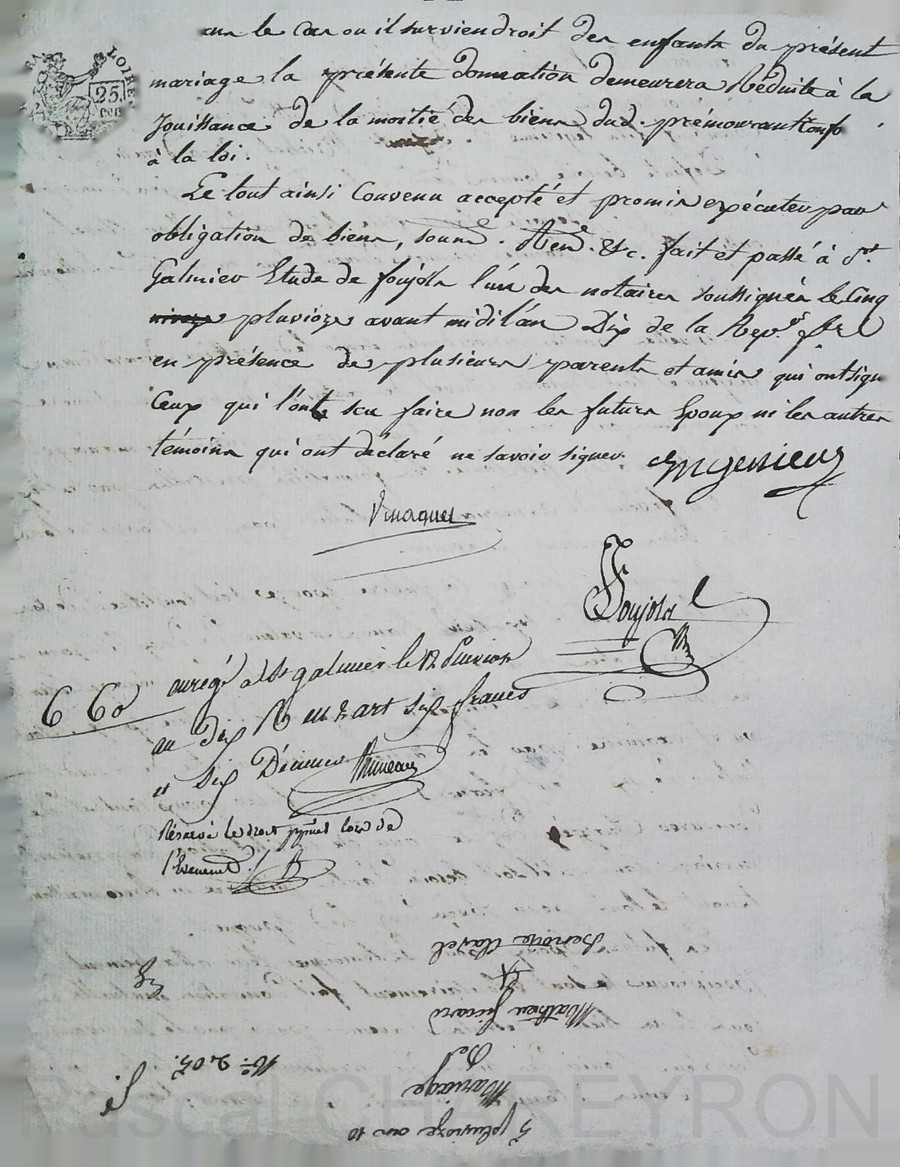 dans le cas ou il surviendroit des enfants du présent
mariage la présente donnation demeurera Réduite à la
Jouissance de la moitié des biens dud. prémourant Conf
à la loi.
Le tout ainsi Convenu accepté et promis exécuter par
obligation de biens, soum. Ren. &c. fait et passé à St.
Galmier Etude de foujols l'un des notaires soussignés le Cinq
nivoze pluvioze avant midi l'an Dix de la Rep. fse
en présence de plusieurs parents et amis qui ont sign
Ceux qui l'ont scu faire non les futurs Epoux ni les autres
témoins qui ont déclaré ne savoir signer
Foujols
6 60
enregé a St galmier le 12 Pluviose
an dix R six francs
et six Décimes Bruneau
Réservé le droit lors de
l'Evenemt.
5 pluvioze an 10
Mariage
De
Mathieu Girard
&
Benoite Clavel
No. 205.
25
cen
LOIRE
Pascal CHAREYRON